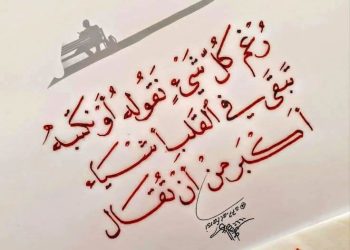 رُغْمَ كُلِّ شَيْءٍ نَقُولُهُ أَوْ نَكْتُبُهُ
تَبْقَى فِي القَلْبِ أَشْيَاء
أَكْبَرُ مِنْ أَنْ تُقَال